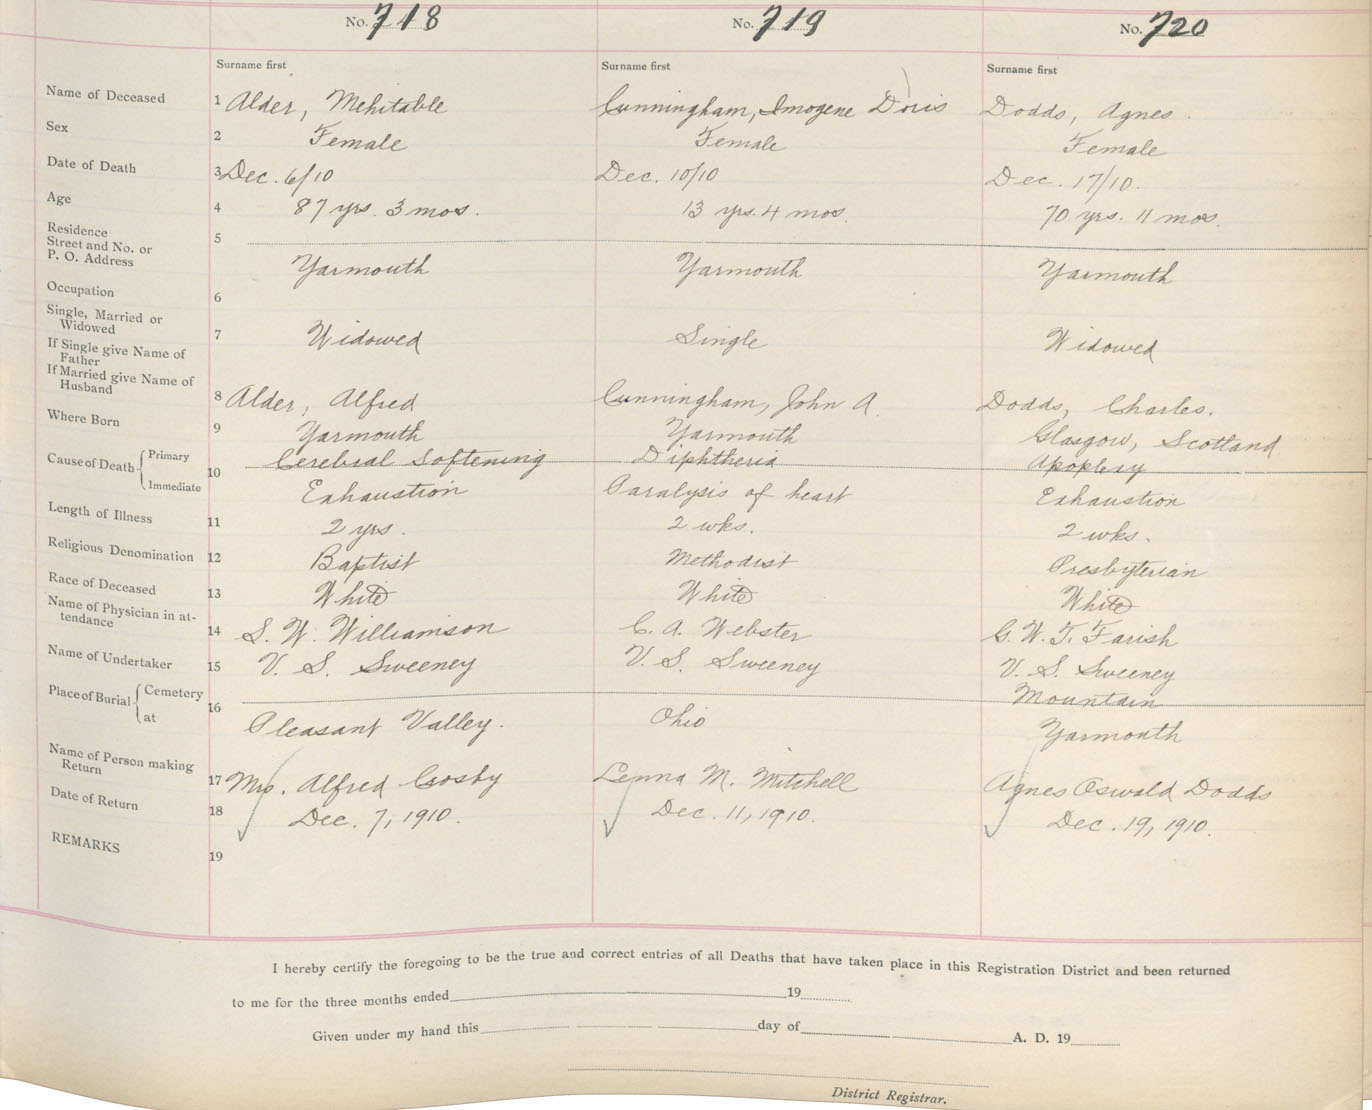 No. 718 No. 719 No. 720
Surname first Surname first Surname first
Name of Deceased 1 Alder, Mehitable Cunningham, Imogene Doris Dodds, Agnes.
Sex 2 Female Female Female
Date of Death 3 Dec. 6/10 Dec. 10/10 Dec. 17/10.
Age 4 87 yrs. 3 mos. 13 yrs. 4 mos. 70 yrs. 11 mos.
Residence
Street and No. or 5
P. O. Address Yarmouth Yarmouth Yarmouth
Occupation 6
Single, Married or
Widowed 7 Widowed Single Widowed
If Single give Name of
Father
If Married give Name of
Husband 8 Alder, Alfred Cunningham, John A. Dodds, Charles.
Where Born 9 Yarmouth Yarmouth Glasgow, Scotland
Cause of Death Primary 10 Cerebral Softening Diphtheria Apoplexy
Immediate Exhaustion Paralysis of heart Exhaustion
Length of Illness 11 2 yrs. 2 wks. 2 wks.
Religious Denomination 12 Baptist Methodist Presbyterian
Race of Deceased 13 White White White
Name of Physician in at-
tendance 14 S. W. Williamson C. A. Webster G. W. T. Farish
Name of Undertaker 15 V. S. Sweeney V. S. Sweeney V. S. Sweeney
Place of Burial Cemetery 16 Mountain
at Pleasant Valley. Ohio Yarmouth
Name of Person making
Return 17 Mrs. Alfred Crosby Lenna M. Mitchell Agnes Oswald Dodds
Date of Return 18 Dec. 7, 1910. Dec. 11, 1910. Dec. 19, 1910.
REMARKS 19
I hereby certify the foregoing to be the true and correct entries of all Deaths that have taken place in this Registration District and been returned
to me for the three months ended 19
Given under my hand this day of A. D. 19
District Registrar.